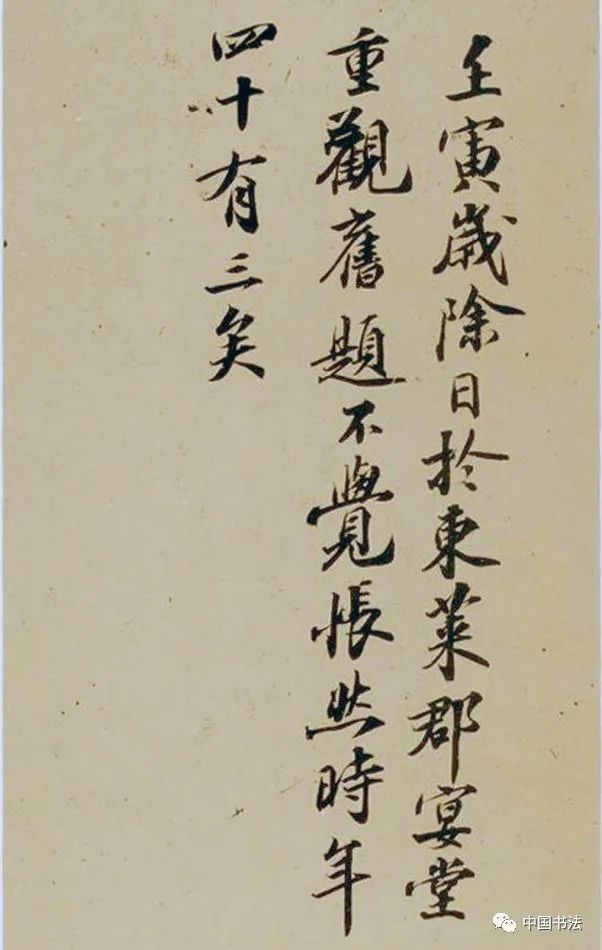 壬寅歲除日於東萊郡宴堂
重觀舊題不覺悵然時年
四十有三矣
中国书法